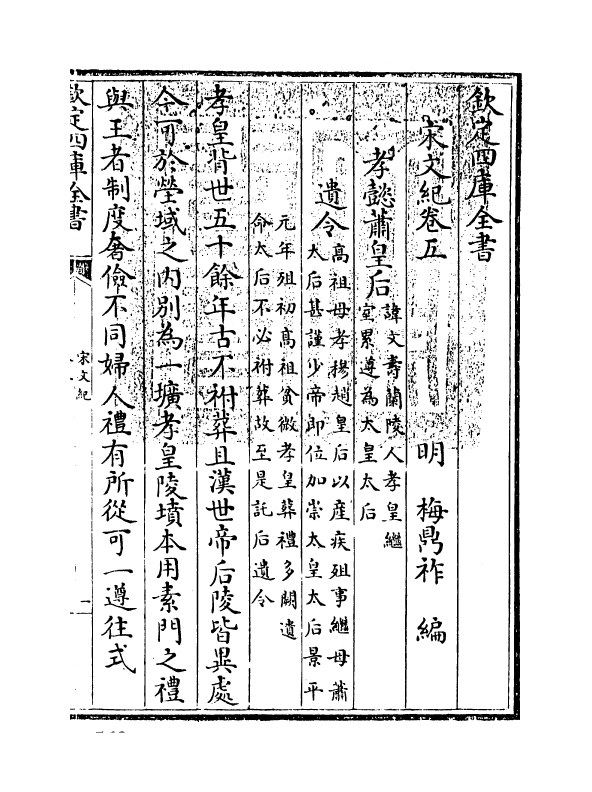 欽定四庫全書
宋文紀卷五
明 梅鼎祚 編
孝懿蕭皇后
諱文壽蘭陵人孝皇繼
室累遵為太皇太后
遺令
高祖母孝穆趙皇后以產疾殂事繼母蕭
太后甚謹少帝即位加崇太皇太后景平
元年殂初高祖貧微孝皇葬禮多闕遺
命太后不必祔葬故至是託后遺令
孝皇背世五十餘年古不祔葬且漢世帝后陵皆異處
今可於塋域之內別為一壙孝皇陵墳本用素門之禮
與王者制度奢儉不同婦人禮有所從可一遵往式
欽定四庫全書
宋文紀
一